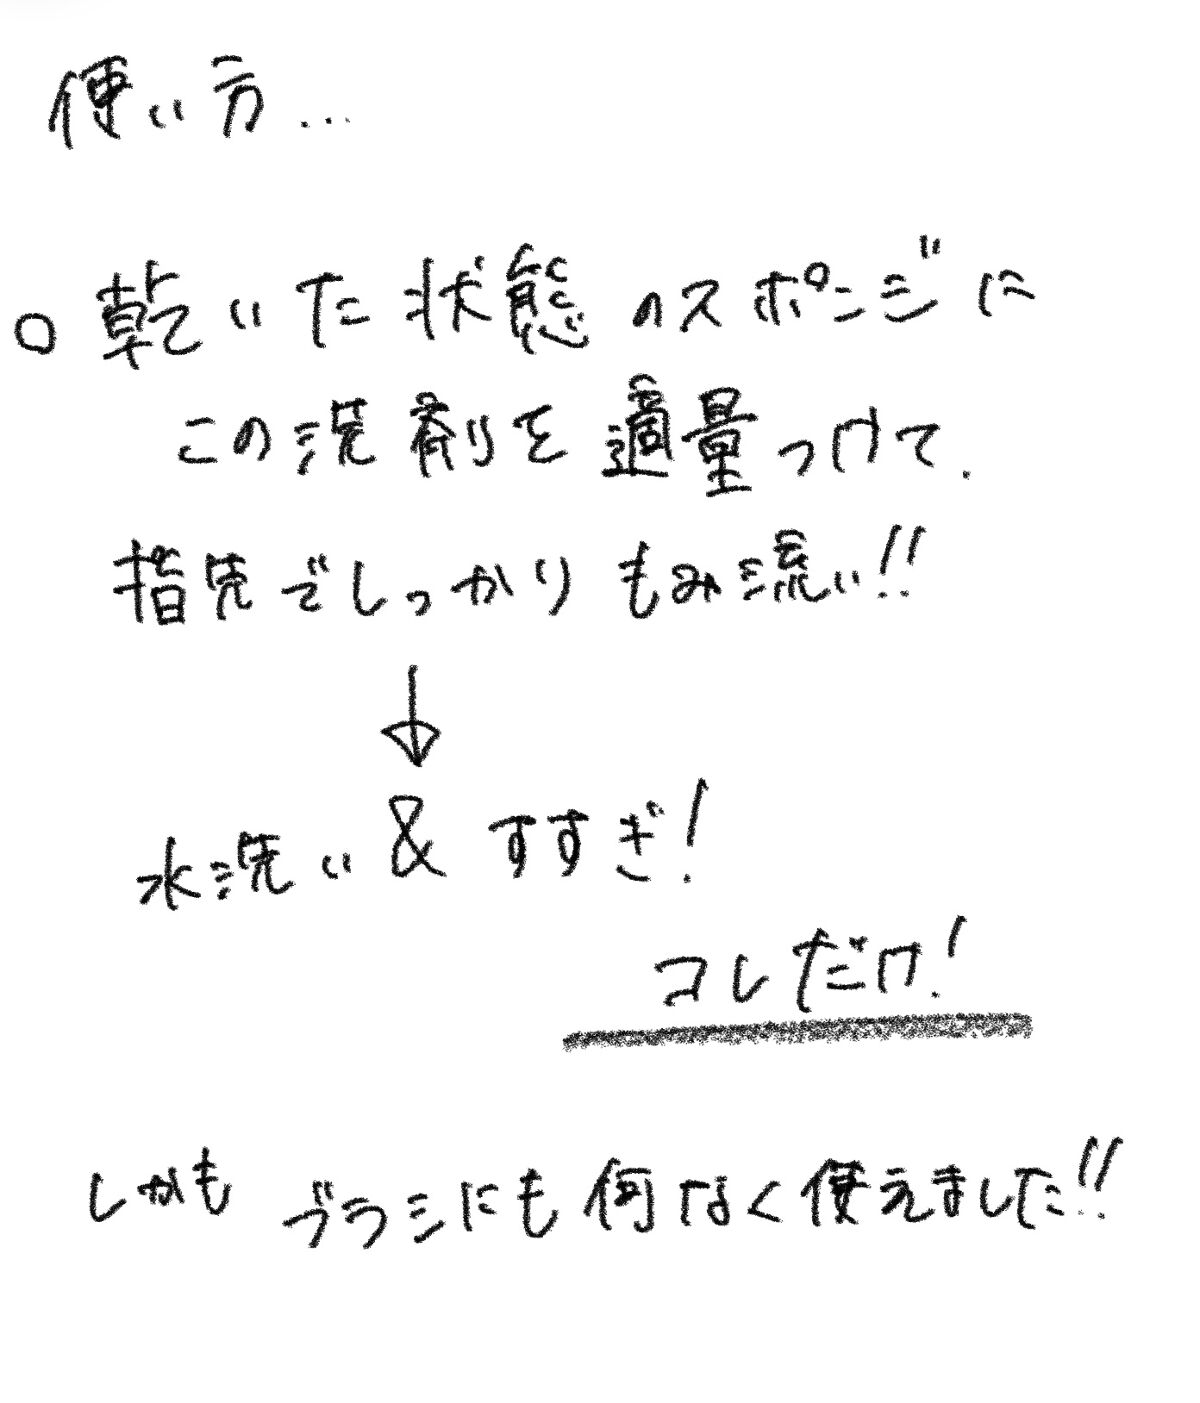 使い方...
○ 乾いた状態のスポンジに
この洗剤を適量つけて.
指先でしっかりもみ流い!!
↓
水洗い & すすぎ!
コレだけ!
しかも ブラシにも何なく使えました!!